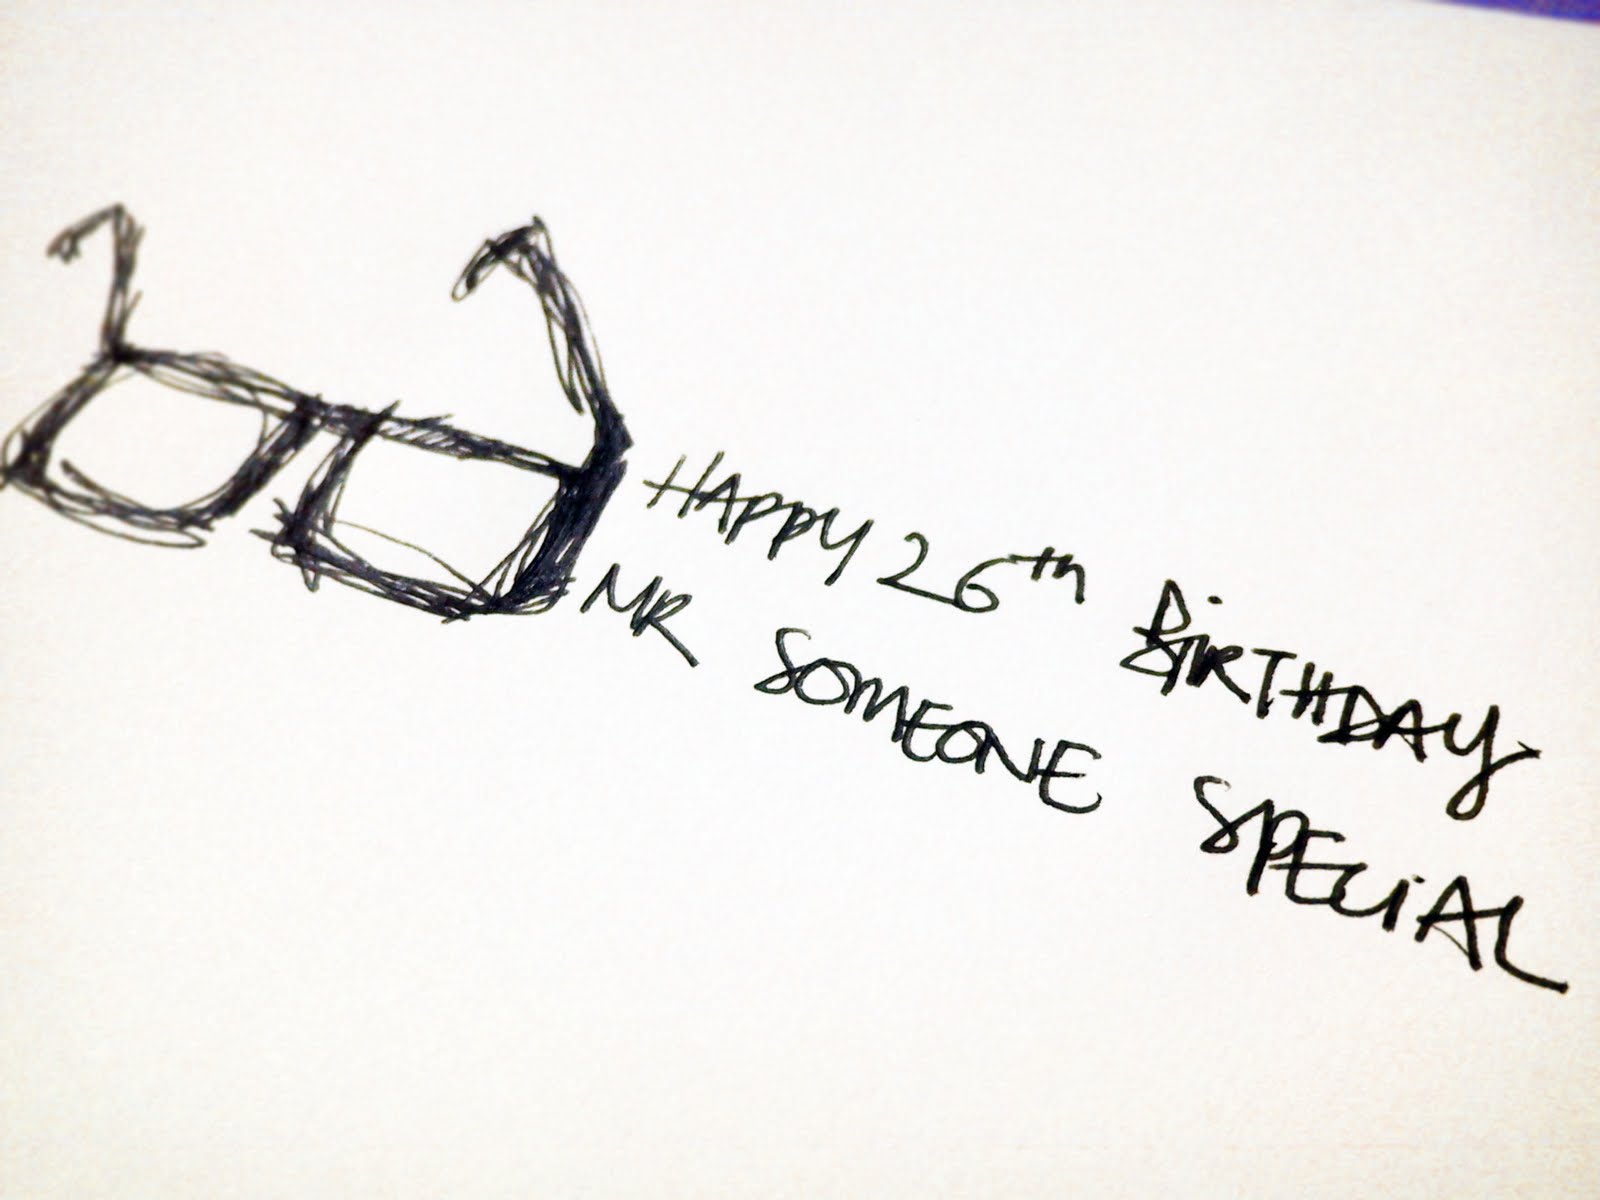 HAPPY 26th BiRTHDAY
MR SOMEONE SPECiAL